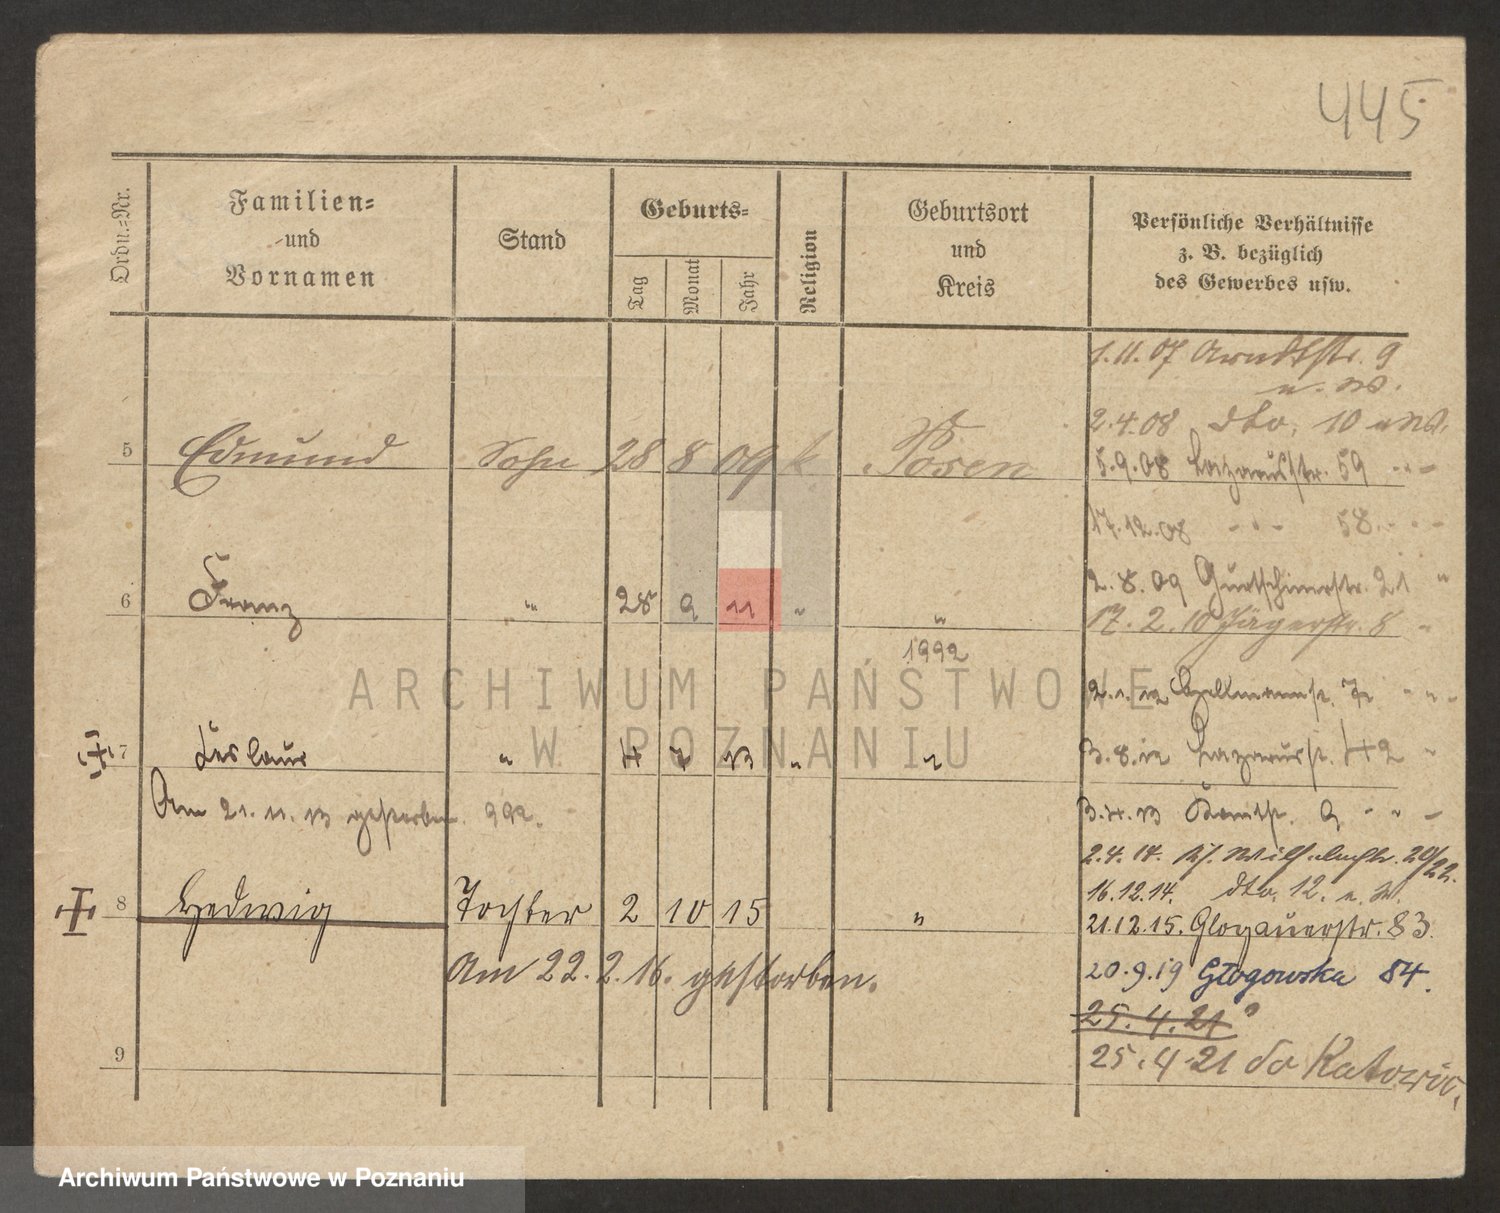 445
Ordn.-Nr.
Familien-
und
Vornamen
Stand
Geburts-
Tag Monat Jahr
Religion
Geburtsort
und
Kreis
Persönliche Verhältnisse
z. B. bezüglich
des Gewerbes usw.
1.11.07 Arndtstr. 9
u. W.
2.4.08 dto. 10 u W.
5 Edmund Sohn 28 8 09 k Posen
5.9.08 Lazarusstr. 59 " "
17.12.08 " " 58. " "
2.8.09 Gurtschinerstr. 21 "
6 Franz " 28 9 11 " "
17.2.10 Jägerstr. 8 "
1992
2.1.12 str. 7 " "
7 " 4 7 13 " "
3.8.12 Lazarusstr. 42 "
Am 21. 11. 13 gestorben. 992.
3.4.13 9 " "
2.4.14. 20/22.
16.12.14. dto. 12. u. W.
8 Hedwig Tochter 2 10 15 "
21.12.15. Glogauerstr. 83.
Am 22. 2. 16. gestorben.
20.9.19 Głogowska 84.
25.4.21
9
25.4.21 do Katowic.
ARCHIWUM PAŃSTWOWE
W POZNANIU
Archiwum Państwowe w Poznaniu